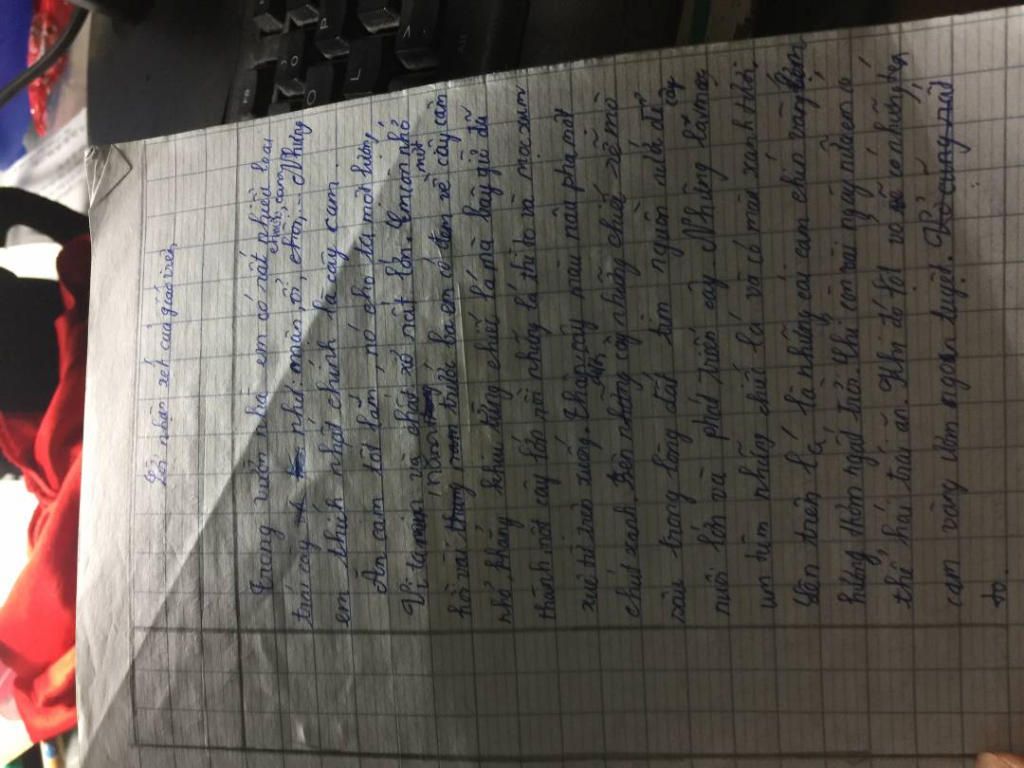 Lời nhận xét của giáo viên
Trong vườn nhà em có rất nhiều loại
trái cây như mận, ổi, chuối, cam, chôm,... Nhưng
em thích nhất chính là cây cam
Ăn cam tốt lắm, nó cho ta một lượng
Vitamin và chất xơ rất lớn. Em còn nhớ
hồi vài năm trước ba em có đem về một cây cam
nhỏ, khẳng khiu từng chiếc lá mà bây giờ đã
thành một cây lớn rồi những lá thì to và mọc xum
xuê từ trên xuống. Thân cây màu nâu pha một
chút xanh. Bên dưới cây những chiếc rễ mò
sâu trong lòng đất tìm nguồn nước để
nuôi lớn và phát triển cây. Những tán cây
um tùm những chiếc lá và có màu xanh tươi.
Bên trên là những trái cam chín vàng,
hương thơm ngọt trái. Chỉ còn vài ngày nữa em có
thể hái trái ăn. Khi đó tết vô sẽ có những trái
cam vàng ươm ngon tuyệt. Vỏ cũng
to.